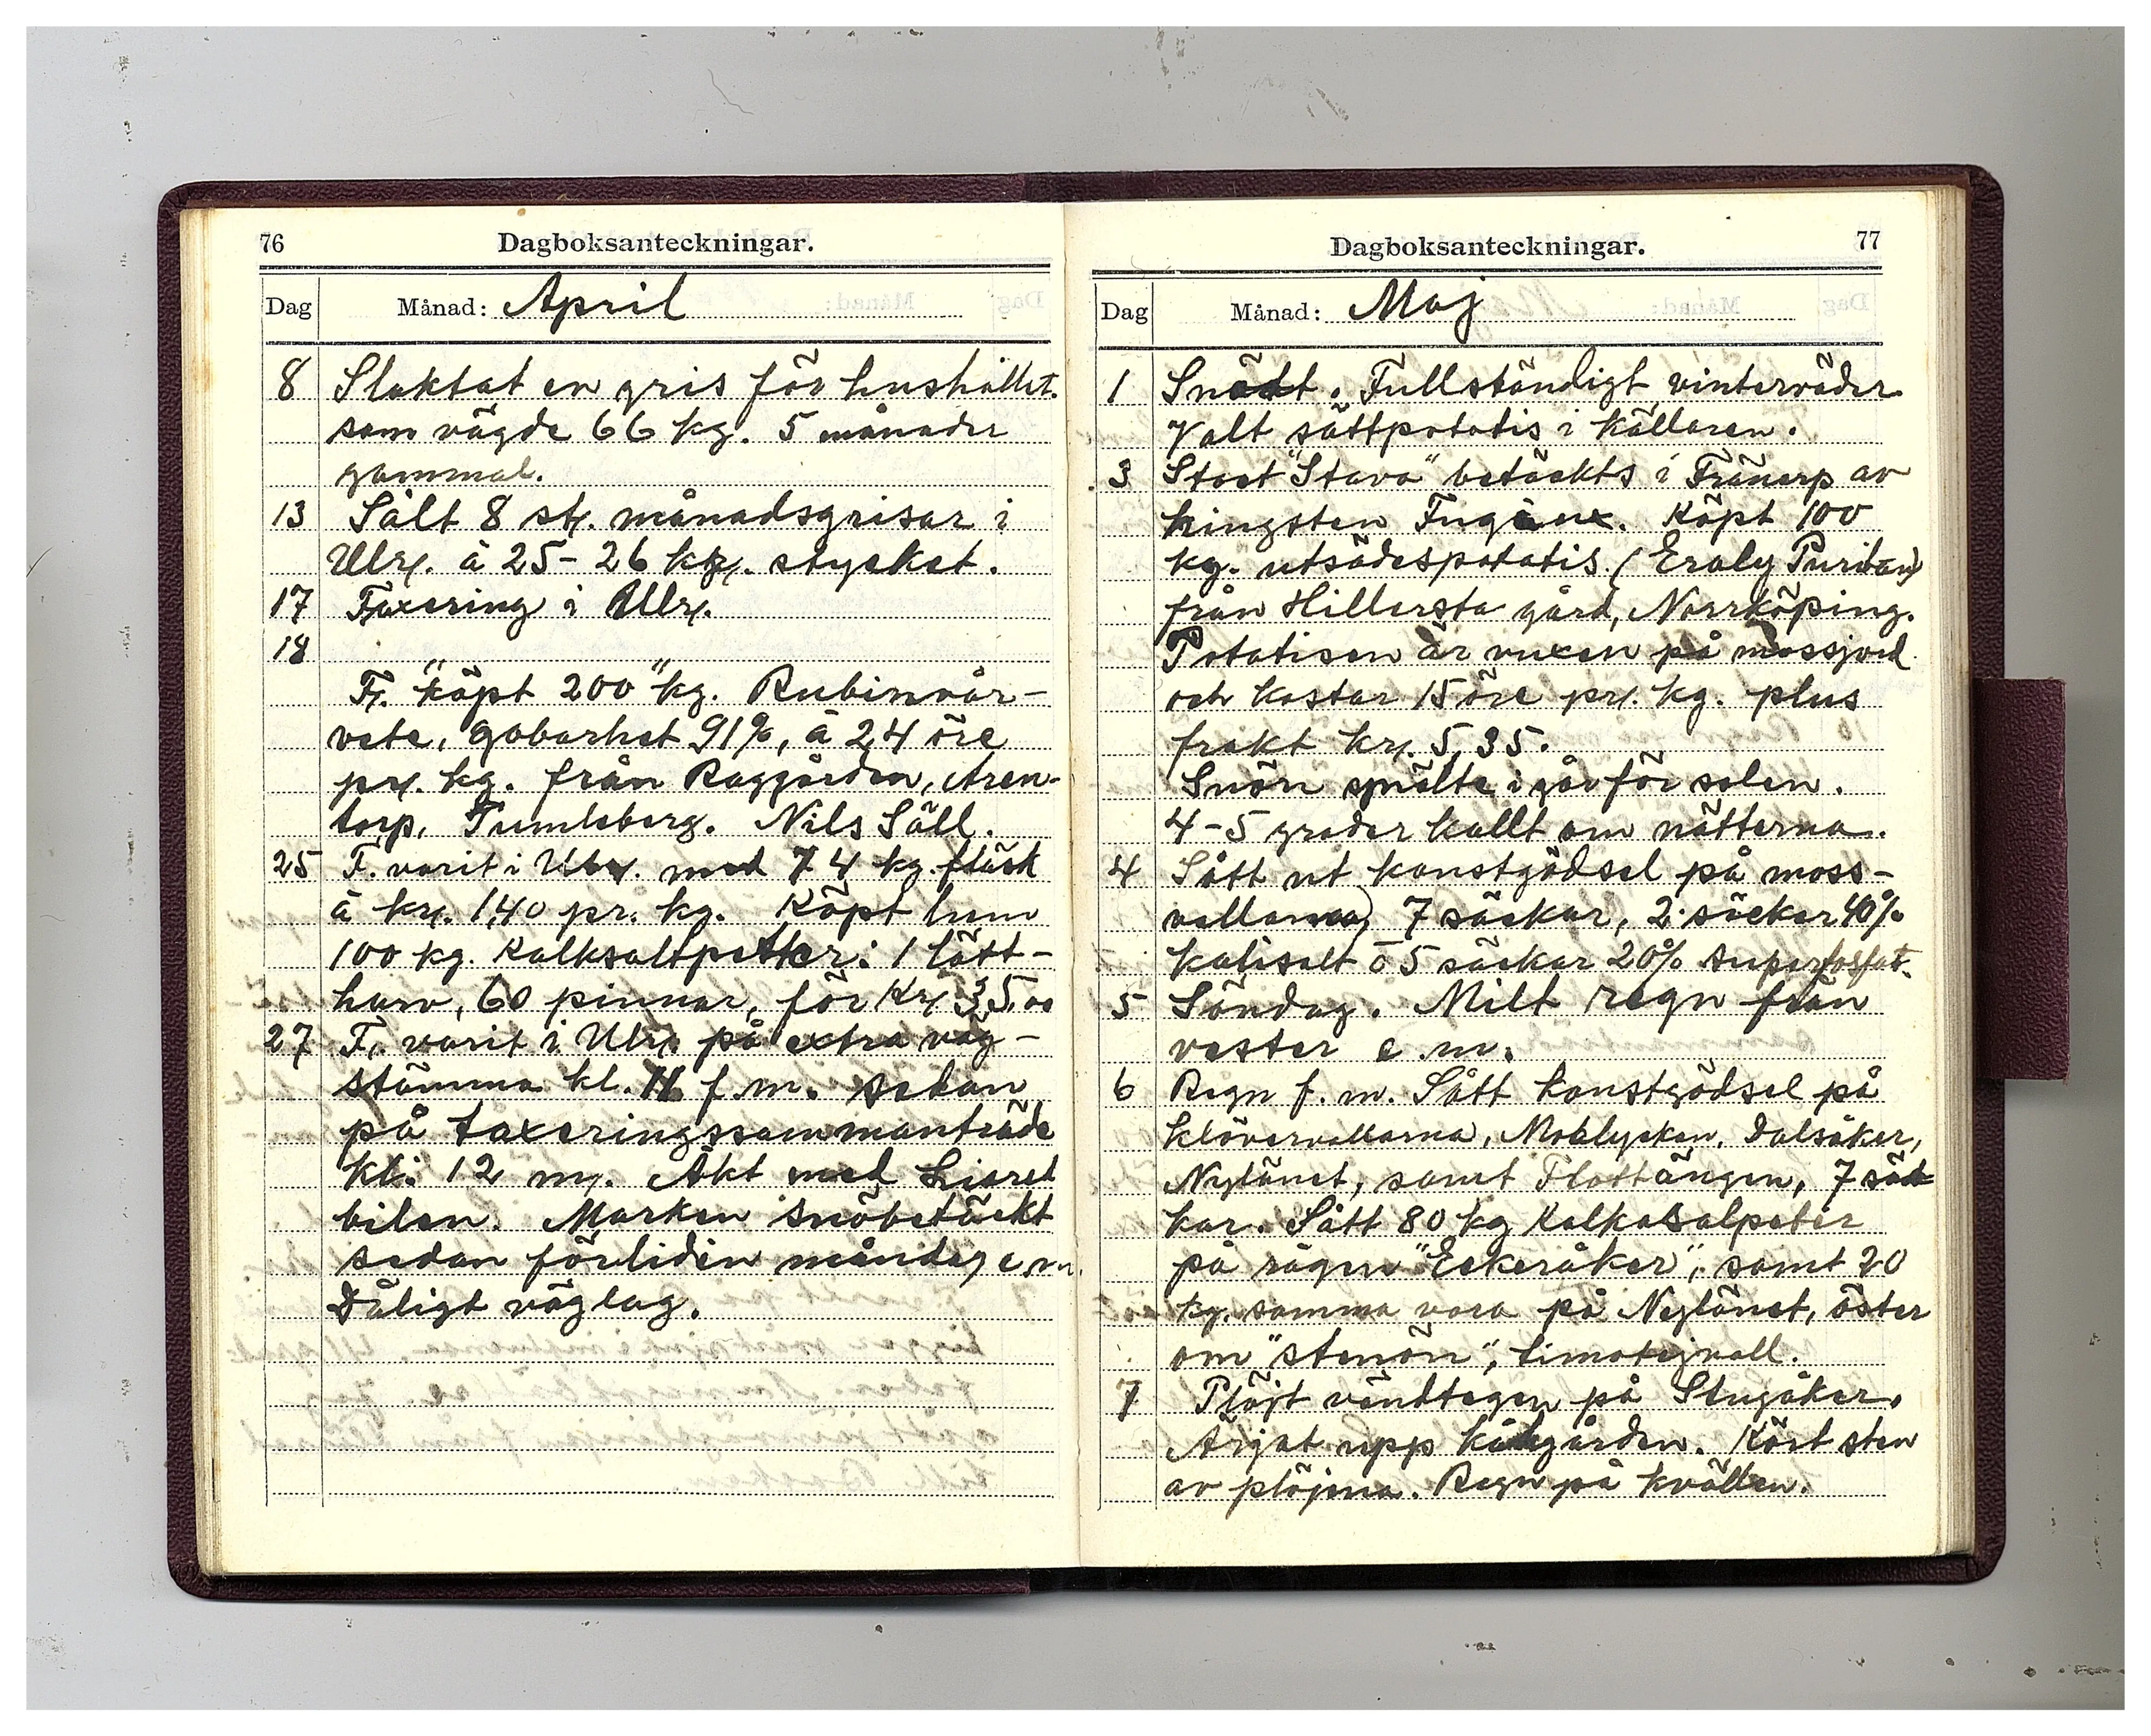 76
Dagboksanteckningar.
Dag Månad: April
8 Slaktat en gris för hushållet.
som vägde 66 kg. 5 månader
gammal.
13 Sålt 8 st. månadsgrisar i
Ulr. à 25-26 kr. stycket.
17 Taxering i Ulr.
18
F. "köpt 200" kg. Rubinvår-
vete, grobarhet 91%, à 24 öre
pr. kg. från Raggården, Aren-
torp, Tumleberg. Nils Säll.
25 F. varit i Ulr. med 74 kg. fläsk
à kr. 1,40 pr. kg. Köpt hem
100 kg. Kalksaltpetter. 1 lätt-
harv, 60 pinnar, för Kr. 35,00
27 F. varit i Ulr. på extra väg-
stämma kl. 11 f.m. sedan
på taxeringssammanträde
kl. 12 m. Åkt med Liaret
bilen. Marken snöbetäckt
sedan förliden måndag e.m.
Dåligt väglag.
77
Dagboksanteckningar.
Dag Månad: Maj
1 Snödt. Fullständigt vinterväder
Valt sättpotatis i källaren.
3 Stoet "Stava" betäckts i Tränarp av
hingsten . Köpt 100
kg. utsädespotatis. (Eraly Puritan)
från Hillersta gård, Norrköping.
Potatisen är vuxen på mossjord
och kostar 15 öre pr. kg. plus
frakt kr. 5,35.
Snön smälte i går för solen.
4-5 grader kallt om nätterna.
4 Sått ut konstgödsel på moss-
vallarna) 7 säckar, 2 säckar 40%
kalisalt o 5 säckar 20% superfosfat.
5 Söndag. Milt regn från
vester e.m.
6 Regn f.m. Sått konstgödsel på
klövervallarna, Moblycken, Dalsåker,
Nylänet, samt Flattängen, 7 säc
kar. Sått 80 kg Kalksalpeter
på rågen "Eekeråker", samt 20
kg. samma vara på Nylänet, öster
om "stenön", timotejvall.
7 Plöjt vändtegen på Stugåker.
Ärjat upp kålgården. Kört sten
av plöjena. Regn på kvällen.